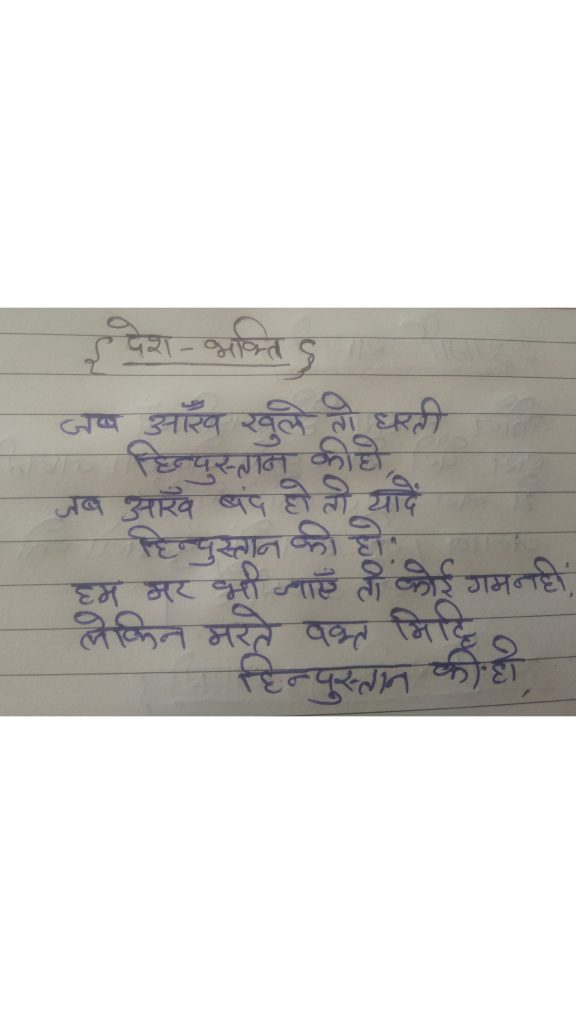 { देश - भक्ति }
जब आँख खुले तो धरती
हिन्दुस्तान की हो,
जब आँख बंद हो तो यादें
हिन्दुस्तान की हो.
हम मर भी जाएँ तो कोई गम नहीं.
लेकिन मरते वक्त मिट्टि
हिन्दुस्तान की हो.